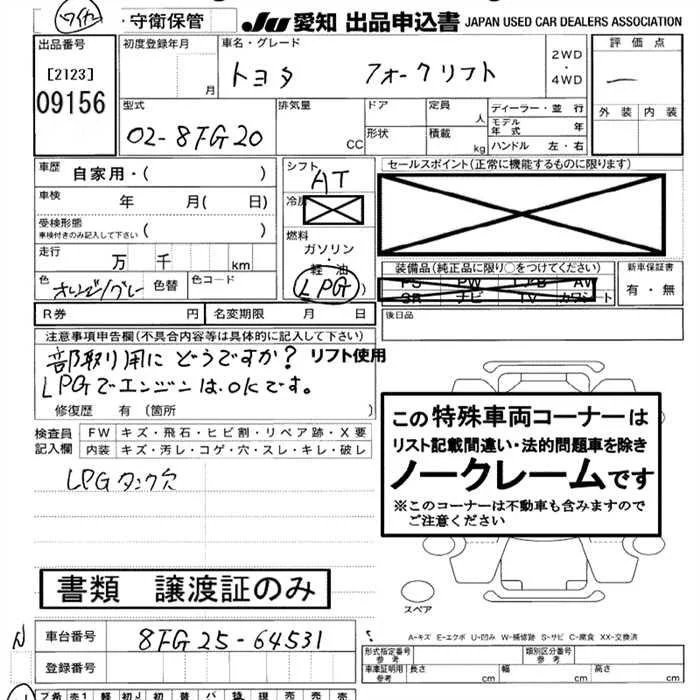 ワイド ・守衛保管 JU 愛知 出品申込書 JAPAN USED CAR DEALERS ASSOCIATION
出品番号 初度登録年月 車名・グレード 評価点
[2123] 月 トヨタ フォークリフト 2WD・4WD 一
09156 型式 排気量 ドア 定員 人 ディーラー・並行 外装 内装
02-8FG20 CC 形状 積載 kg モデル年式 年
ハンドル 左・右
車歴 自家用・( ) シフト AT セールスポイント(正常に機能するものに限ります)
車検 年 月( 日) 冷房
受検形態 車検付きのみ記入して下さい ( ) 燃料
走行 万 千 km ガソリン・軽油
色 オレンジ/グレー 色替 色コード LPG
装備品(純正品に限り○をつけてください) 新車保証書
PS PW エアB AV 有・無
SR ナビ TV カワシート
R券 円 名変期限 月 日 後日品
注意事項申告欄(不具合内容等は具体的に記入して下さい)
部取り用にどうですか? リフト使用
LPGでエンジンは.OKです。
修復歴 有 〔箇所 〕
検査員記入欄 FW キズ・飛石・ヒビ割・リペア跡・X要
内装 キズ・汚レ・コゲ・穴・スレ・キレ・破レ
LPGタンク欠
この特殊車両コーナーは
リスト記載間違い・法的問題車を除き
ノークレームです
※このコーナーは不動車も含みますので
ご注意ください
書類 譲渡証のみ
スペア
N 車台番号 8FG25-64531
A-キズ E-エクボ U-凹み W-補修跡 S-サビ C-腐食 XX-交換済
登録番号 形式指定番号 参考 類別区分番号 参考
車庫証明用 参考 長さ cm 幅 cm 高さ cm